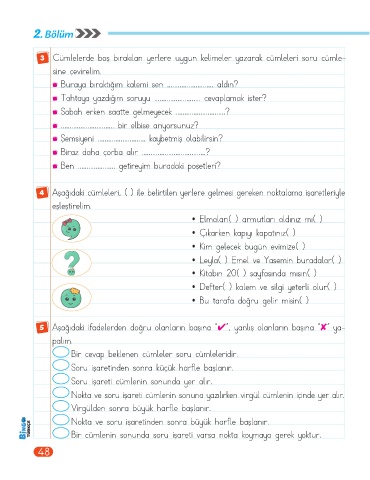 2. Bölüm
3 Cümlelerde boş bırakılan yerlere uygun kelimeler yazarak cümleleri soru cümle-
sine çevirelim.
Buraya bıraktığım kalemi sen ........................ aldın?
Tahtaya yazdığım soruyu ........................ cevaplamak ister?
Sabah erken saatte gelmeyecek ........................?
........................ bir elbise arıyorsunuz?
Şemsiyeni ........................ kaybetmiş olabilirsin?
Biraz daha çorba alır ................................?
Ben .................... getireyim buradaki poşetleri?
4 Aşağıdaki cümleleri, ( ) ile belirtilen yerlere gelmesi gereken noktalama işaretleriyle
eşleştirelim.
• Elmaları( ) armutları aldınız mı( )
• Çıkarken kapıyı kapatınız( )
• Kim gelecek bugün evimize( )
• Leyla( ) Emel ve Yasemin buradalar( )
• Kitabın 20( ) sayfasında mısın( )
• Defter( ) kalem ve silgi yeterli olur( )
• Bu tarafa doğru gelir misin( )
5 Aşağıdaki ifadelerden doğru olanların başına "✔", yanlış olanların başına "✘" ya-
palım.
Bir cevap beklenen cümleler soru cümleleridir.
Soru işaretinden sonra küçük harfle başlanır.
Soru işareti cümlenin sonunda yer alır.
Nokta ve soru işareti cümlenin sonuna yazılırken virgül cümlenin içinde yer alır.
Virgülden sonra büyük harfle başlanır.
Nokta ve soru işaretinden sonra büyük harfle başlanır.
Bir cümlenin sonunda soru işareti varsa nokta koymaya gerek yoktur.
BİNGO
TÜRKÇE
48